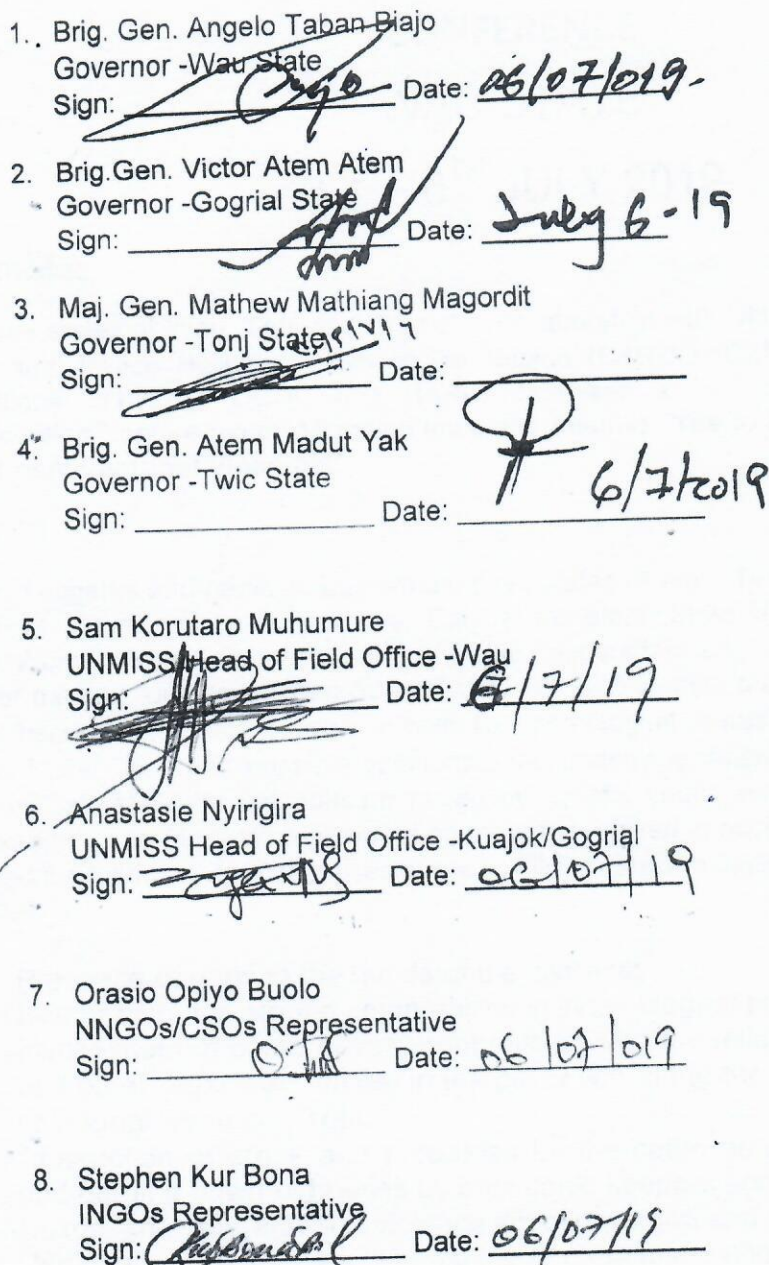 1. Brig. Gen. Angelo Taban Biajo
Governor -Wau State
Sign: Date: 06/07/019.
2. Brig.Gen. Victor Atem Atem
Governor -Gogrial State
Sign: Date: July 6-19
3. Maj. Gen. Mathew Mathiang Magordit
Governor -Tonj State
Sign: Date:
4. Brig. Gen. Atem Madut Yak
Governor -Twic State
Sign: Date: 6/7/2019
5. Sam Korutaro Muhumure
UNMISS Head of Field Office -Wau
Sign: Date: 6/7/19
6. Anastasie Nyirigira
UNMISS Head of Field Office -Kuajok/Gogrial
Sign: Date: 06/07/19
7. Orasio Opiyo Buolo
NNGOs/CSOs Representative
Sign: Date: 06/07/019
8. Stephen Kur Bona
INGOs Representative
Sign: Date: 06/07/19